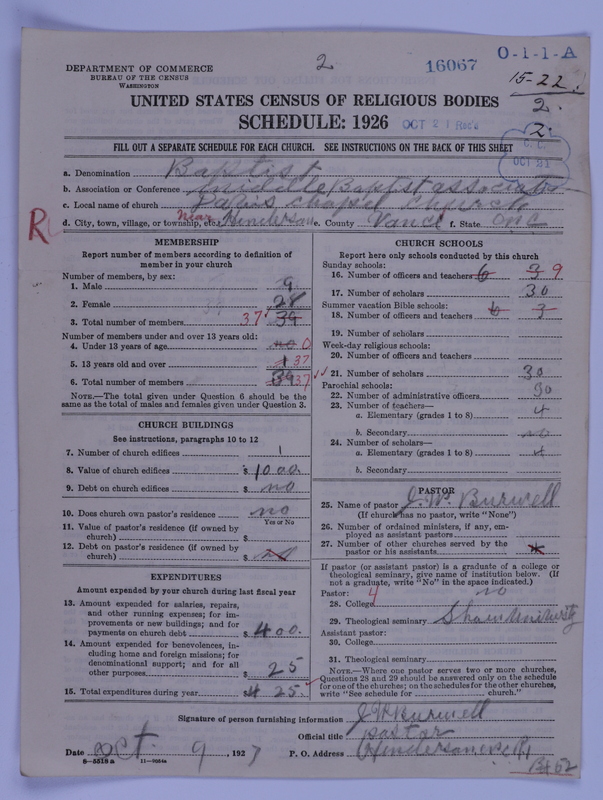 2
16067
O-1-1-A
15-22
2.
2.
DEPARTMENT OF COMMERCE
BUREAU OF THE CENSUS
WASHINGTON
UNITED STATES CENSUS OF RELIGIOUS BODIES
SCHEDULE: 1926
OCT 21 Rec'd
C. C.
OCT 21
FILL OUT A SEPARATE SCHEDULE FOR EACH CHURCH. SEE INSTRUCTIONS ON THE BACK OF THIS SHEET
a. Denomination Baptist
b. Association or Conference Middle Baptist
c. Local name of church Chapel Church
d. City, town, village, or township, etc. Near Henderson e. County Vance f. State
R
MEMBERSHIP
Report number of members according to definition of
member in your church
Number of members, by sex:
1. Male 9
2. Female 28
3. Total number of members 37 39
Number of members under and over 13 years old:
4. Under 13 years of age no 0
5. 13 years old and over 37
6. Total number of members 39 37
NOTE.—The total given under Question 6 should be
same as the total of males and females given under Question 3.
CHURCH BUILDINGS
See instructions, paragraphs 10 to 12
7. Number of church edifices 1
8. Value of church edifices $ 1000
9. Debt on church edifices $ no
10. Does church own pastor's residence no
Yes or No
11. Value of pastor's residence (if owned by
church) $
12. Debt on pastor's residence (if owned by
church) $
EXPENDITURES
Amount expended by your church during last fiscal year
13. Amount expended for salaries, repairs,
and other running expenses; for im-
provements or new buildings; and for
payments on church debt $ 400.
14. Amount expended for benevolences, in-
cluding home and foreign missions; for
denominational support; and for all
other purposes $ 25
15. Total expenditures during year $ 425.
CHURCH SCHOOLS
Report here only schools conducted by this church
Sunday schools:
16. Number of officers and teachers 6 3 9
17. Number of scholars 30
Summer vacation Bible schools:
18. Number of officers and teachers 6 3
19. Number of scholars
Week-day religious schools:
20. Number of officers and teachers
21. Number of scholars 30
Parochial schools:
22. Number of administrative officers 30
23. Number of teachers—
a. Elementary (grades 1 to 8) 4
b. Secondary no
24. Number of scholars—
a. Elementary (grades 1 to 8) 4
b. Secondary
PASTOR
25. Name of pastor J. W. Burwell
(If church has no pastor, write "None")
26. Number of ordained ministers, if any, em-
ployed as assistant pastors
27. Number of other churches served by the
pastor or his assistants
If pastor (or assistant pastor) is a graduate of a college or
theological seminary, give name of institution below. (If
not a graduate, write "No" in the space indicated.)
Pastor: 4
28. College no
29. Theological seminary Shaw University
Assistant pastor:
30. College
31. Theological seminary
NOTE.—Where one pastor serves two or more churches,
Questions 28 and 29 should be answered only on the schedule
for one of the churches; on the schedules for the other churches,
write "See schedule for church."
Signature of person furnishing information J W Burwell
Official title pastor
Date Oct. 9, 1927 P. O. Address Henderson
8—5518 a 11—9054a